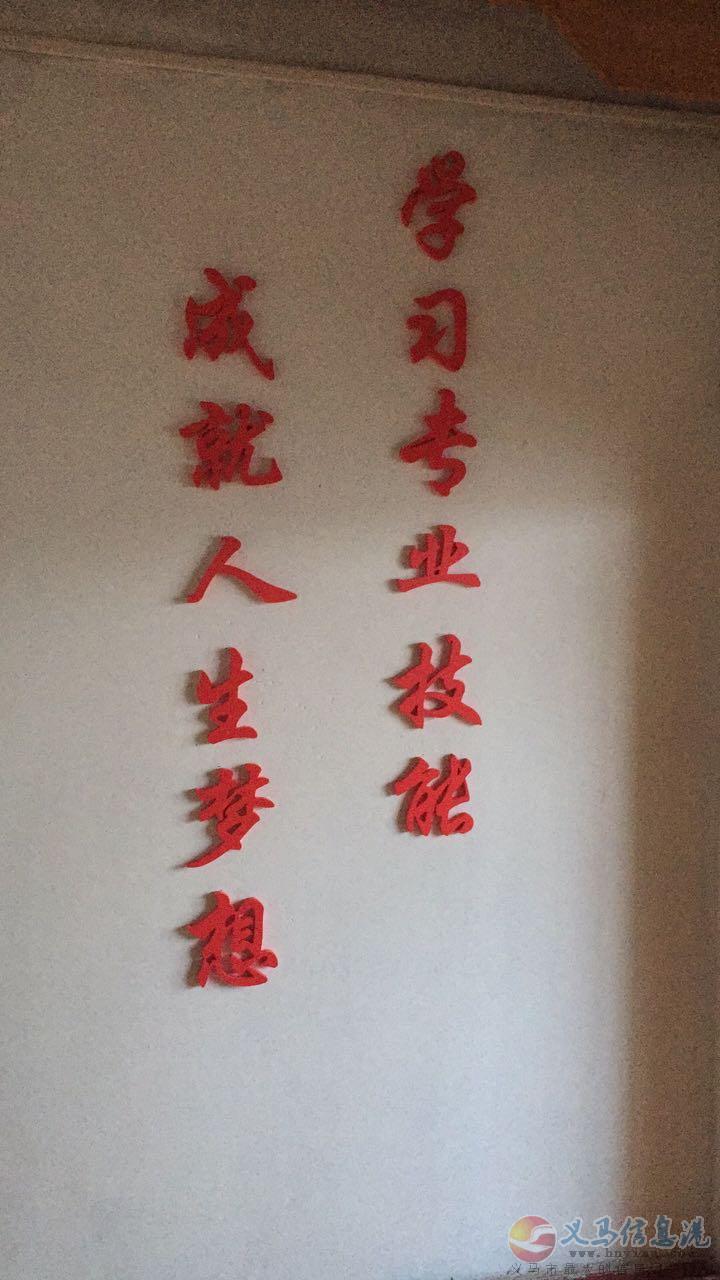 学习专业技能
成就人生梦想
义马信息港